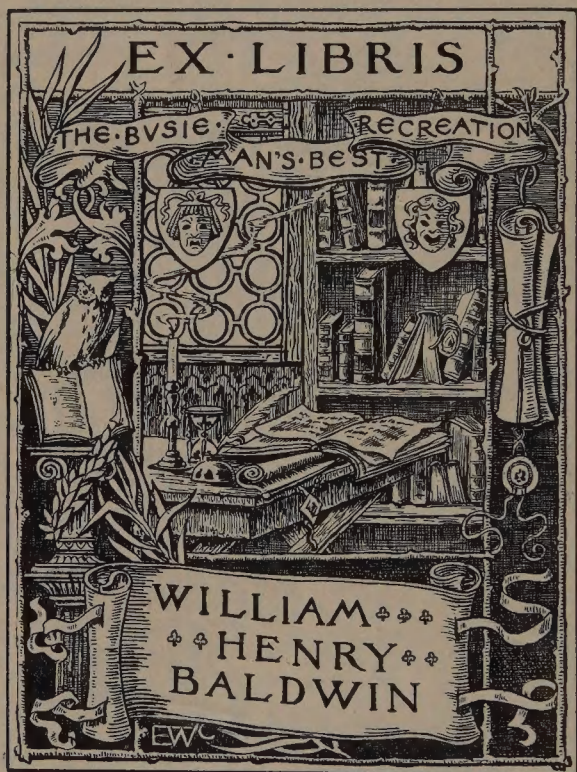 EX·LIBRIS
THE·BVSIE·
·MAN'S·BEST·
RECREATION
WILLIAM
HENRY
BALDWIN
EWC